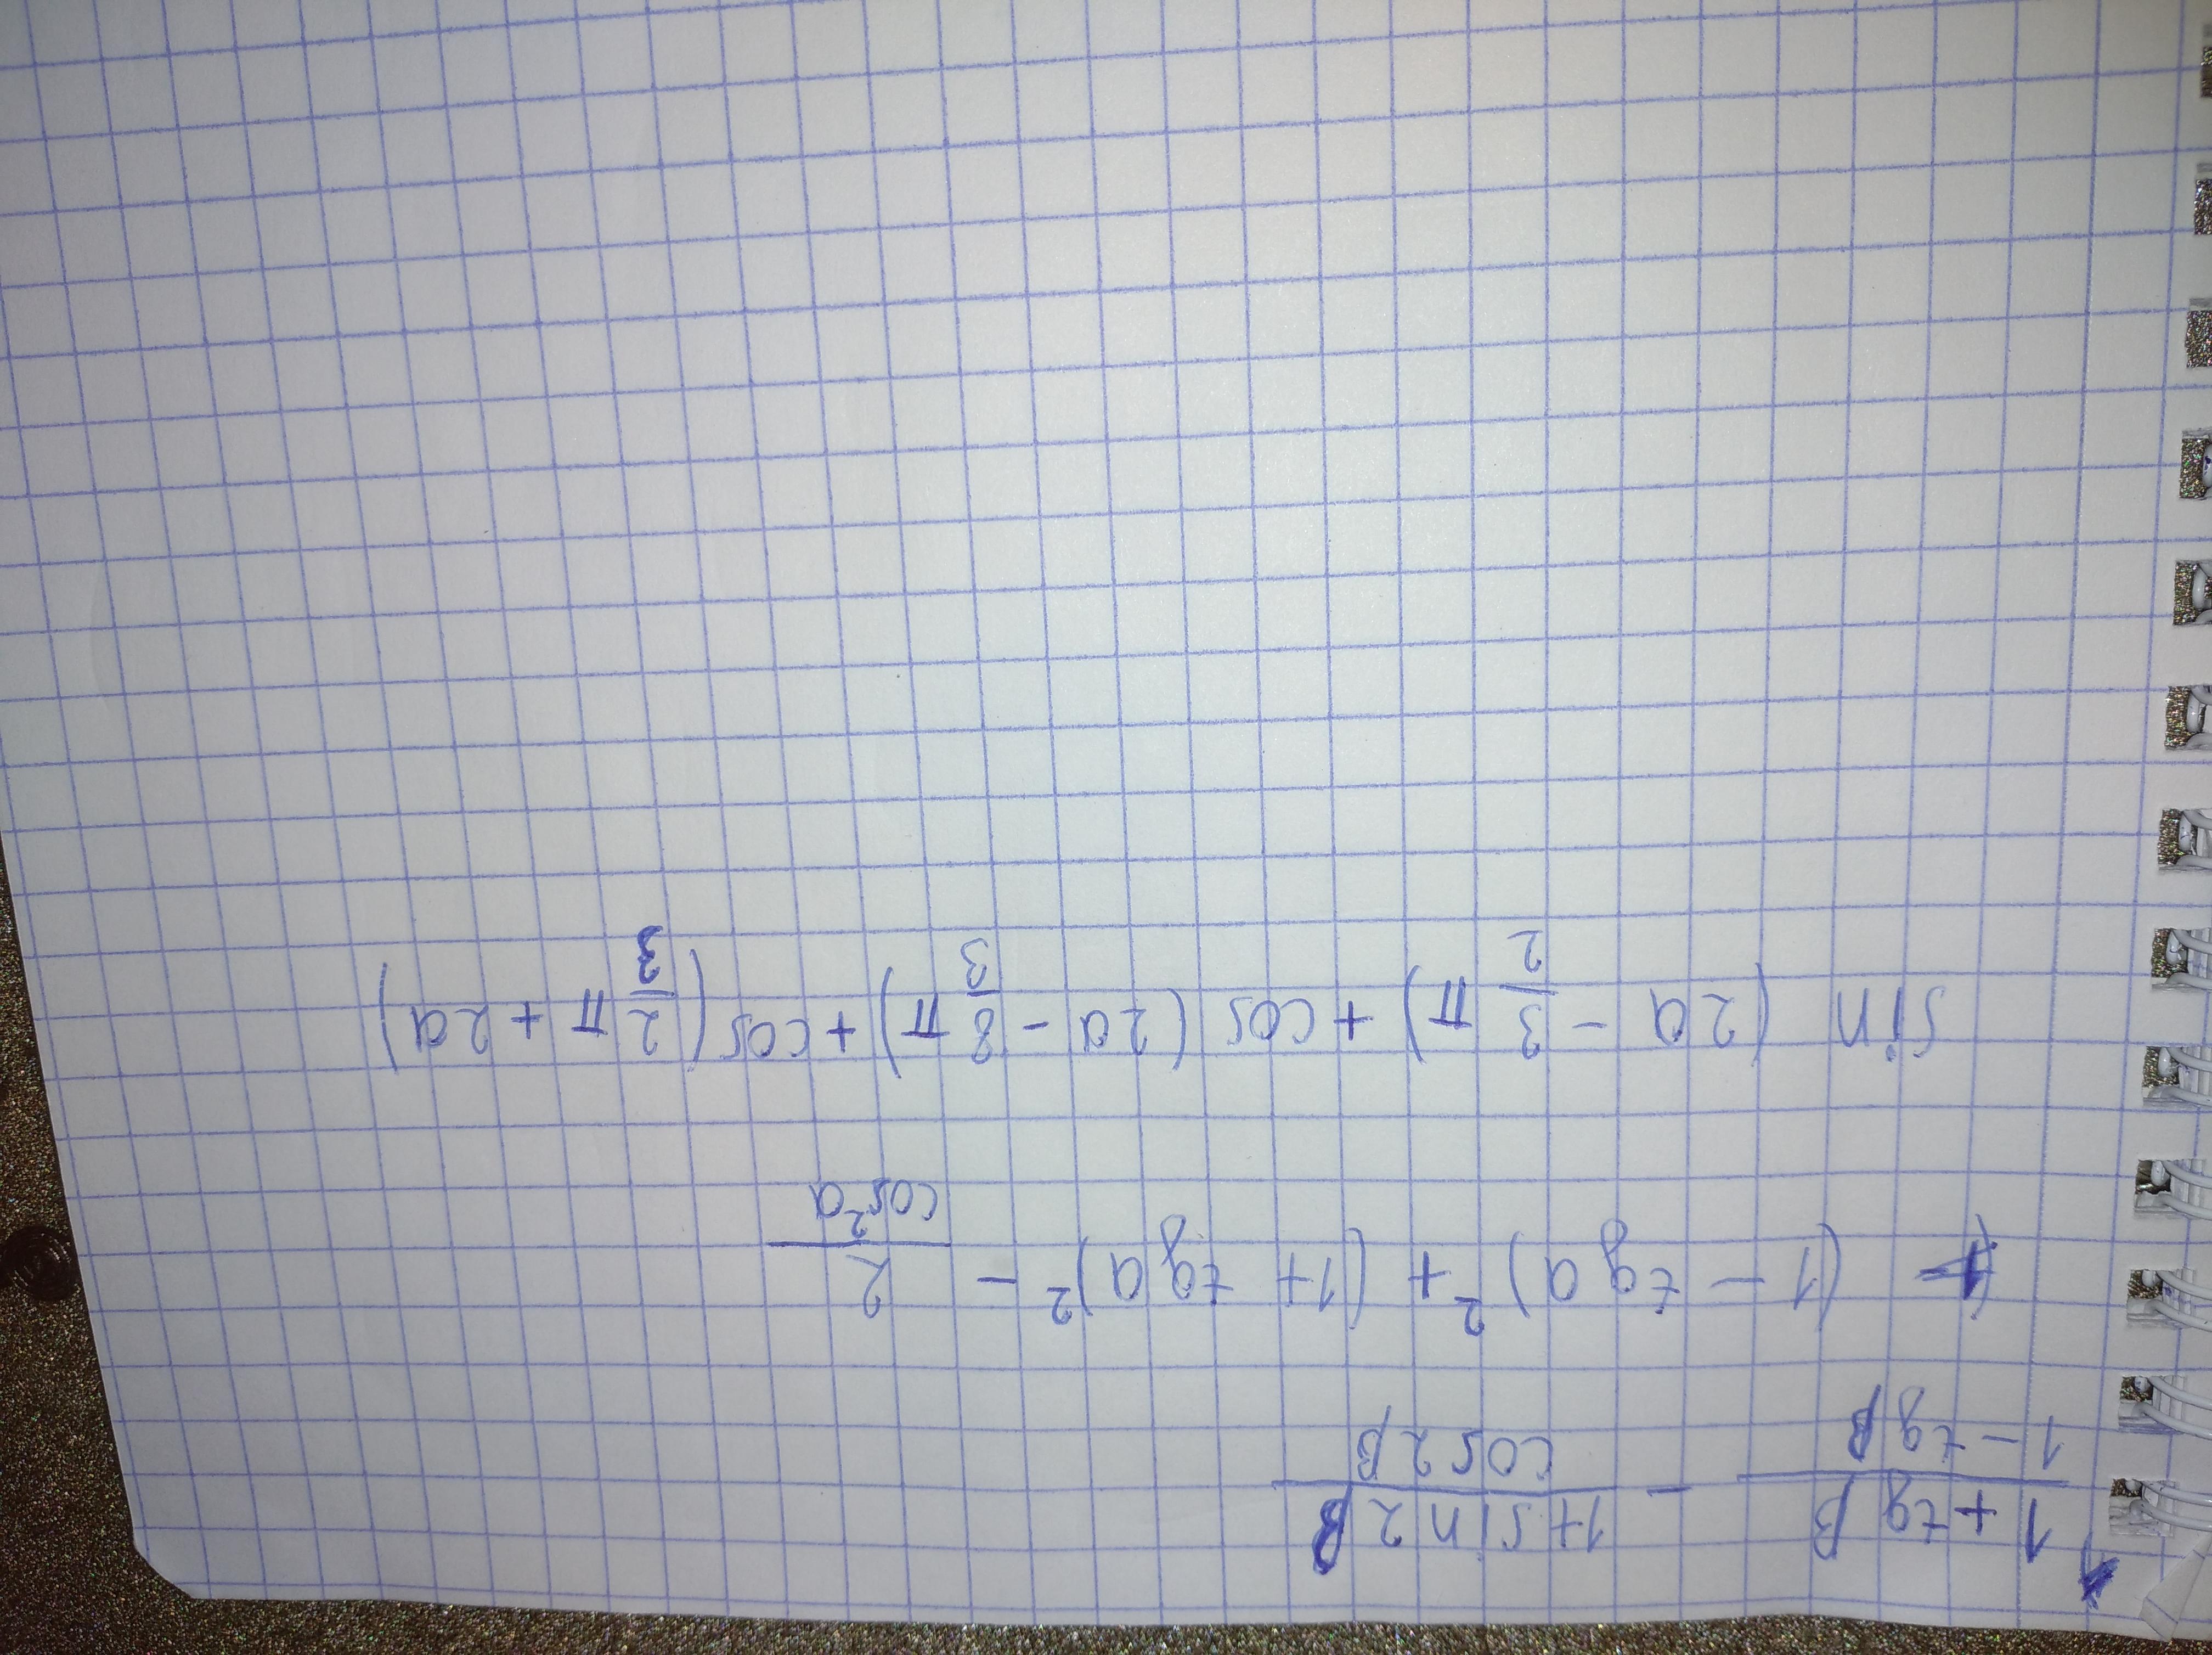 1 + tg β / 1 - tg β - 1 + sin 2 β / cos 2 β
(1 - tg a)² + (1 + tg a)² - 2 / cos² a
sin (2a - 3/2 π) + cos (2a - 8/3 π) + cos (2/3 π + 2a)